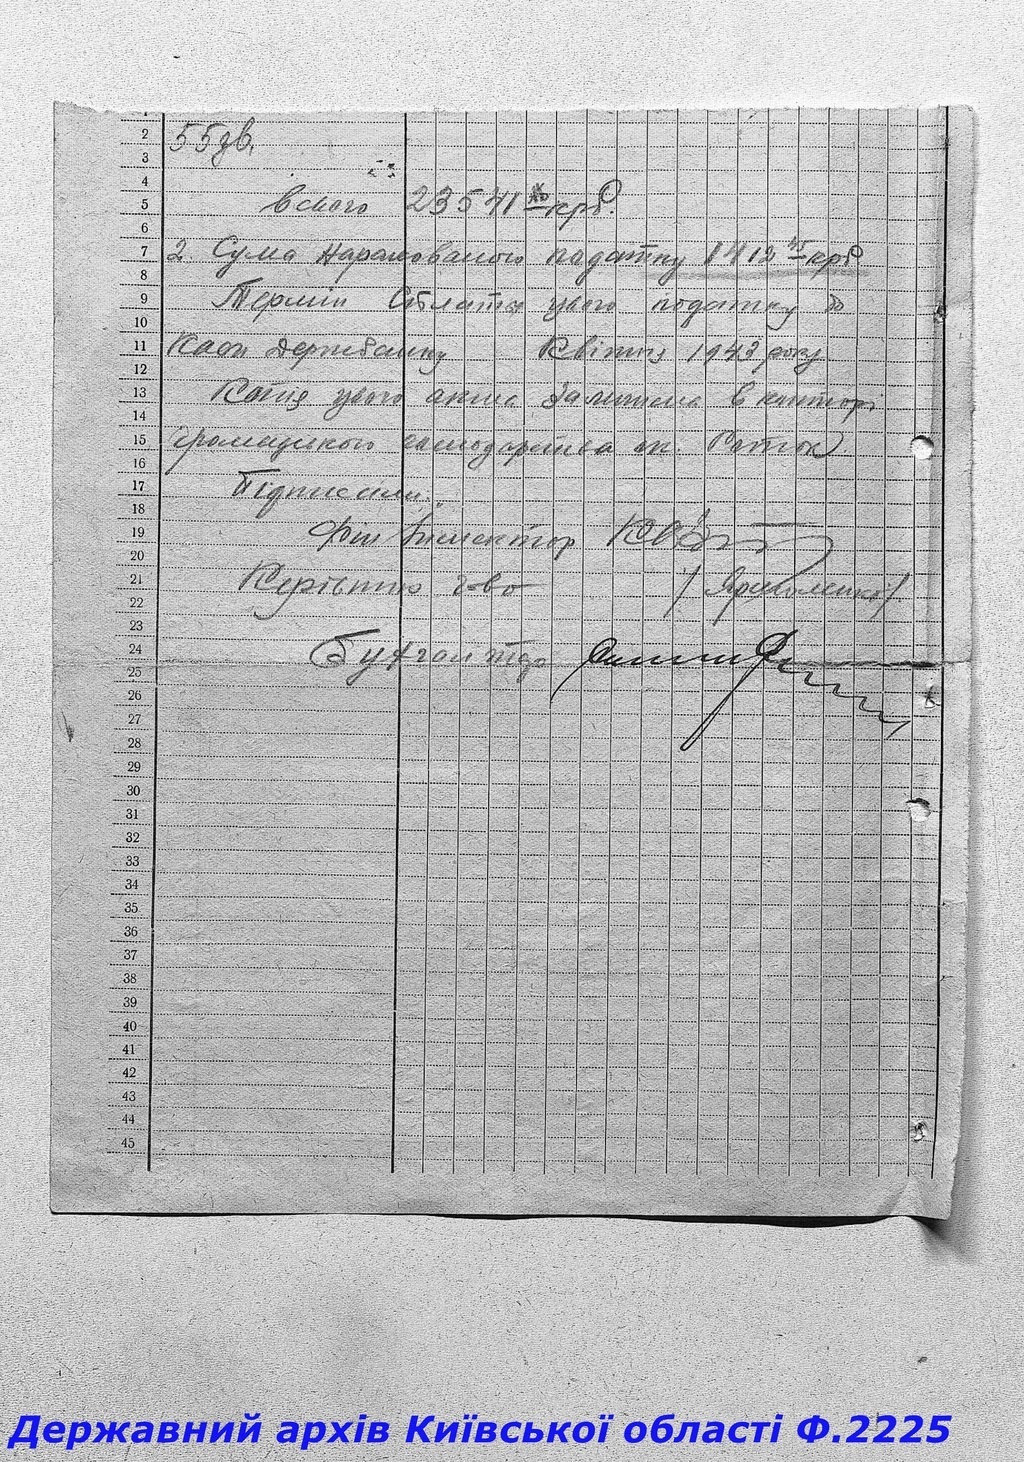 2
3
4
5
6
7
8
9
10
11
12
13
14
15
16
17
18
19
20
21
22
23
24
25
26
27
28
29
30
31
32
33
34
35
36
37
38
39
40
41
42
43
44
45
55 дв.
Всього 23541 крб.
2. Сума нарахованого податку 1412 45 крб
Термін сплати цього податку до
Каси Держбанку Квітня 1943 року
Копія цього акта залишена в конторі
громадського господарства
Підписали:
Фін Інспектор
Керівник г-во
Бухгалтер
Державний архів Київської області Ф.2225